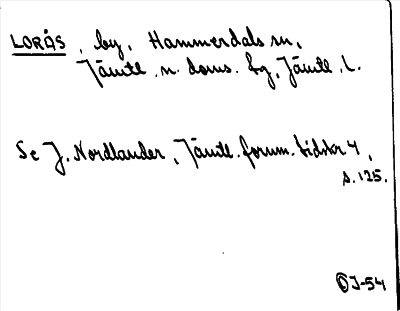 LORÅS, by, Hammerdals sn,
Jämtl. n. doms. fg, Jämtl. l.
Se J. Nordlander, Jämtl. fornm. tidskr 4,
s. 125.
ÖJ-54